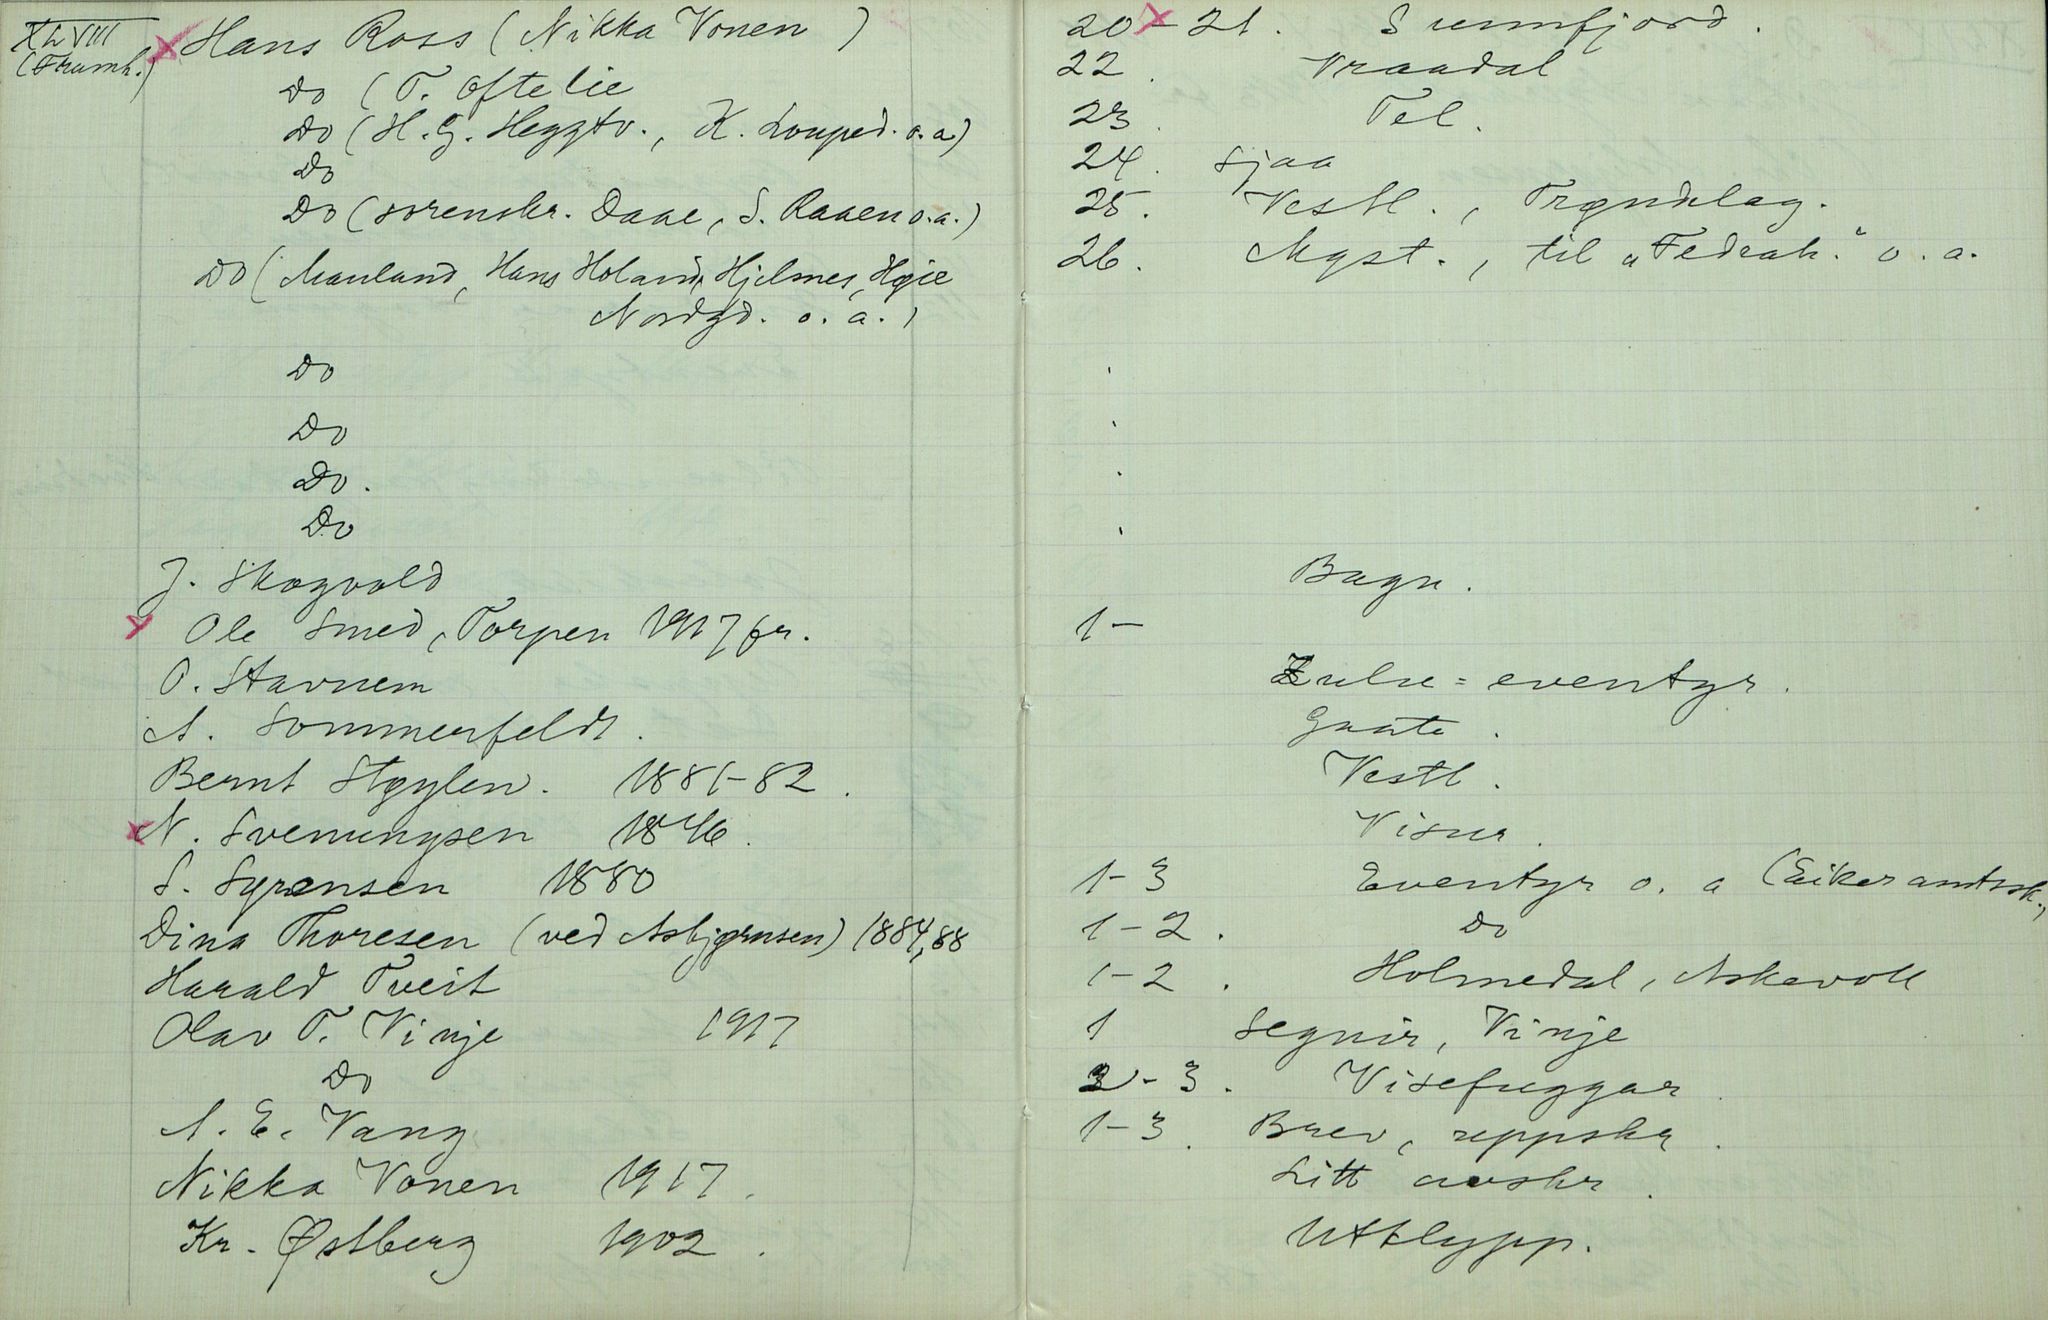 XLVIII
(Framh.)
Hans Ross (Nikka Vonen) 20-21. Sunnfjord.
Do (T. Oftelie 22. Vraadal
Do (H. G. Heggtv., K. Louped. o.a) 23. Tel.
Do 24. Sjaa
Do (sorenskr. Daae, S. Raaen o.a.) 25. Vestl., Trøndelag.
Do (Mauland, Hans Holand, Hjelmes, Høie 26. Mqst., til „Fedrah." o. a.
Nordgd. o. a.)
Do
Do
Do.
Do
J. Skogvold Bagn.
Ole Smed, Torpen 1917 fr. 1-
O. Stavnem Zulu-eventyr.
A. Sommerfeldt. Gaate.
Bernt Støylen. 1881-82. Vestl.
N. Svenungsen 1846. Visur.
S. Sørensen 1880 1-3 Eventyr o. a (Eiker amtssk.,
Dina Thoresen (ved Asbjørnsen) 1884,88 1-2. Do
Harald Tveit 1-2. Holmedal, Askevoll
Olav T. Vinje 1917 1 Segnir, Vinje
Do 2-3. Visefuggar
A. E. Vang 1-3. Brev, uppskr.
Nikka Vonen 1917. Litt avskr.
Kr. Østberg 1902. Utklypp.